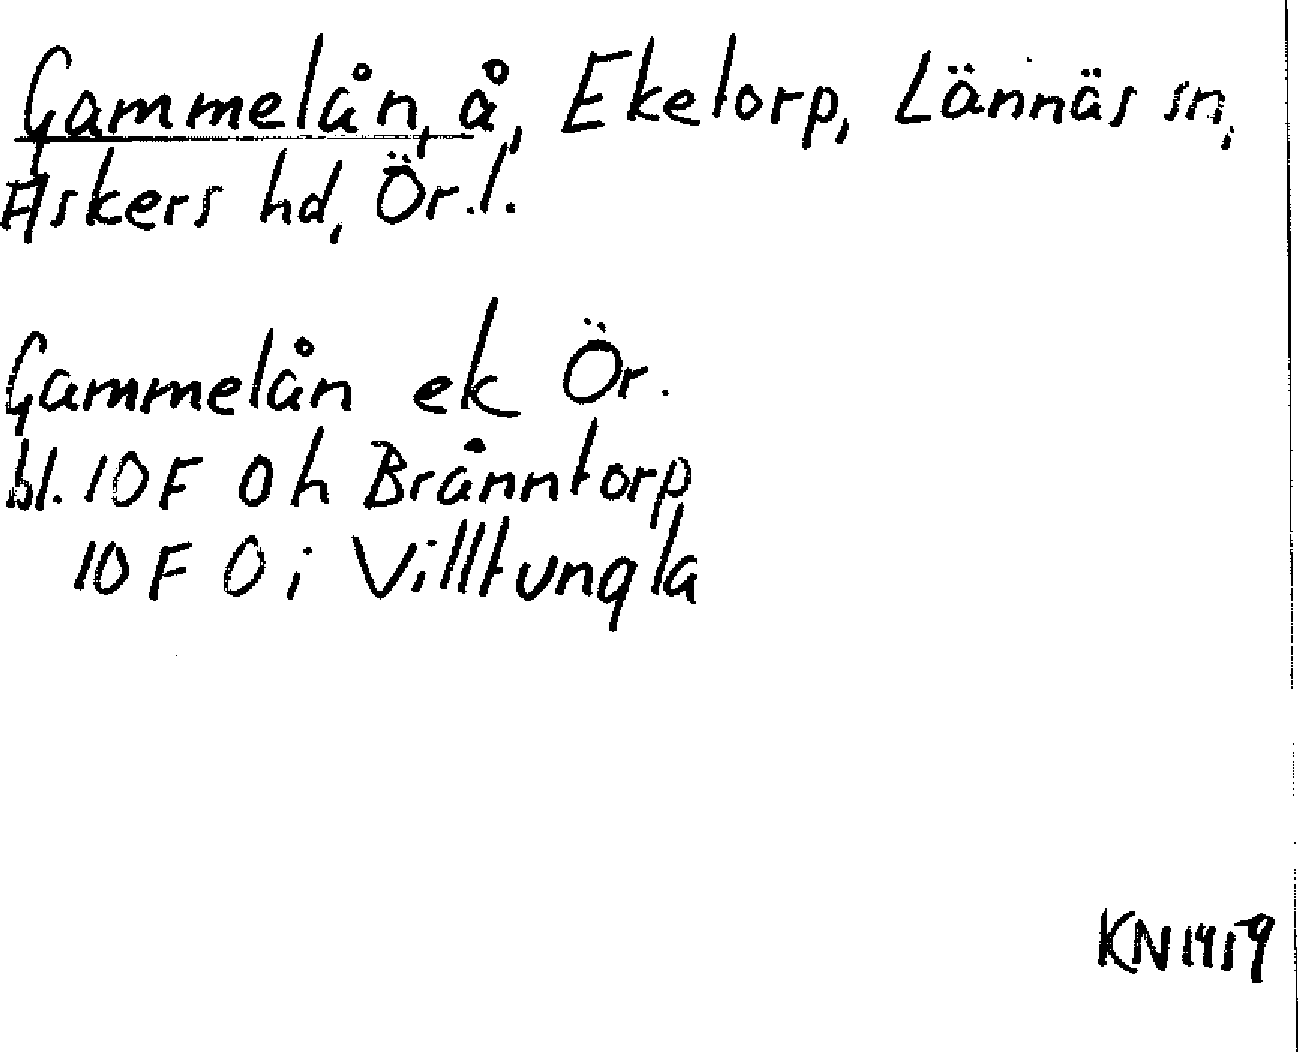 Gammelån, å, Eketorp, Lännäs sn,
Askers hd, Ör.l.
Gammelån ek Ör.
bl. 10F 0h Bränntorp
10F 0i Villtungla
KN 1959